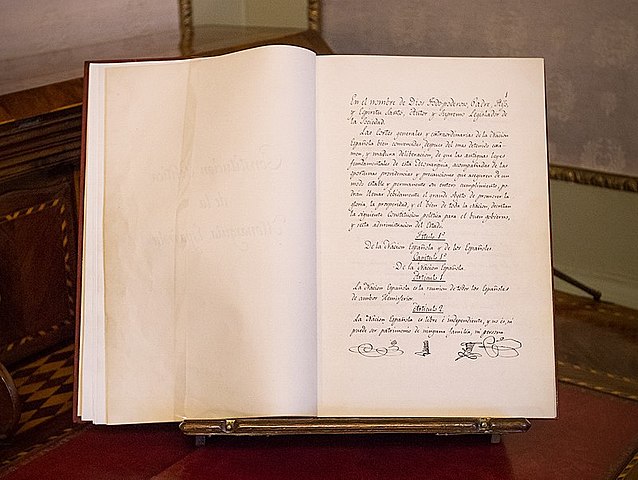 1
En el nombre de Dios Todopoderoso, Padre, Hijo,
y Espiritu Santo, Autor y Supremo Legislador de
la Sociedad.
Las Cortes generales y extraordinarias de la Nacion
Española bien convencidas, despues del mas detenido exa-
men, y madura deliberacion, de que las antiguas Leyes
fundamentales de esta Monarquia, acompañadas de las
oportunas providencias y precauciones que aseguren de un
modo estable y permanente su entero cumplimiento, po-
dran llenar debidamente el grande objeto de promover la
gloria, la prosperidad, y el bien de toda la Nacion, decretan
la siguiente Constitucion politica para el buen gobierno,
y recta administracion del Estado.
Titulo 1º
De la Nacion Española y de los Españoles.
Capitulo 1º
De la Nacion Española.
Articulo 1
La Nacion Española es la reunion de todos los Españoles
de ambos Hemisferios.
Articulo 2
La Nacion Española es libre é independiente, y no es, ni
puede ser patrimonio de ninguna familia, ni persona